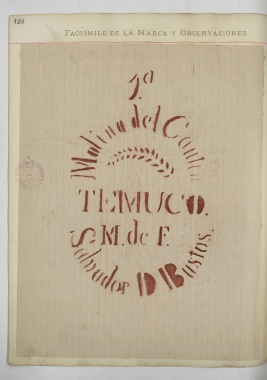 124
FACSIMILE DE LA MARCA Y OBSERVACIONES
1.a
Molino del Cautin
TEMUCO.
M. de F.
Salvador D Bustos.